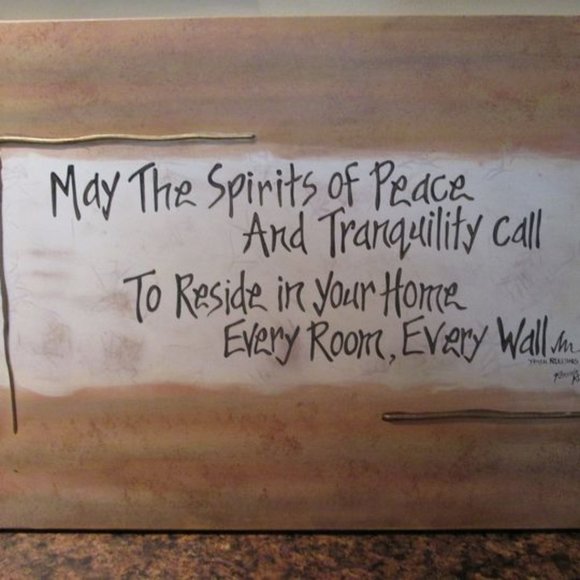 May The Spirits of Peace
And Tranquility Call
To Reside in Your Home
Every Room, Every Wall